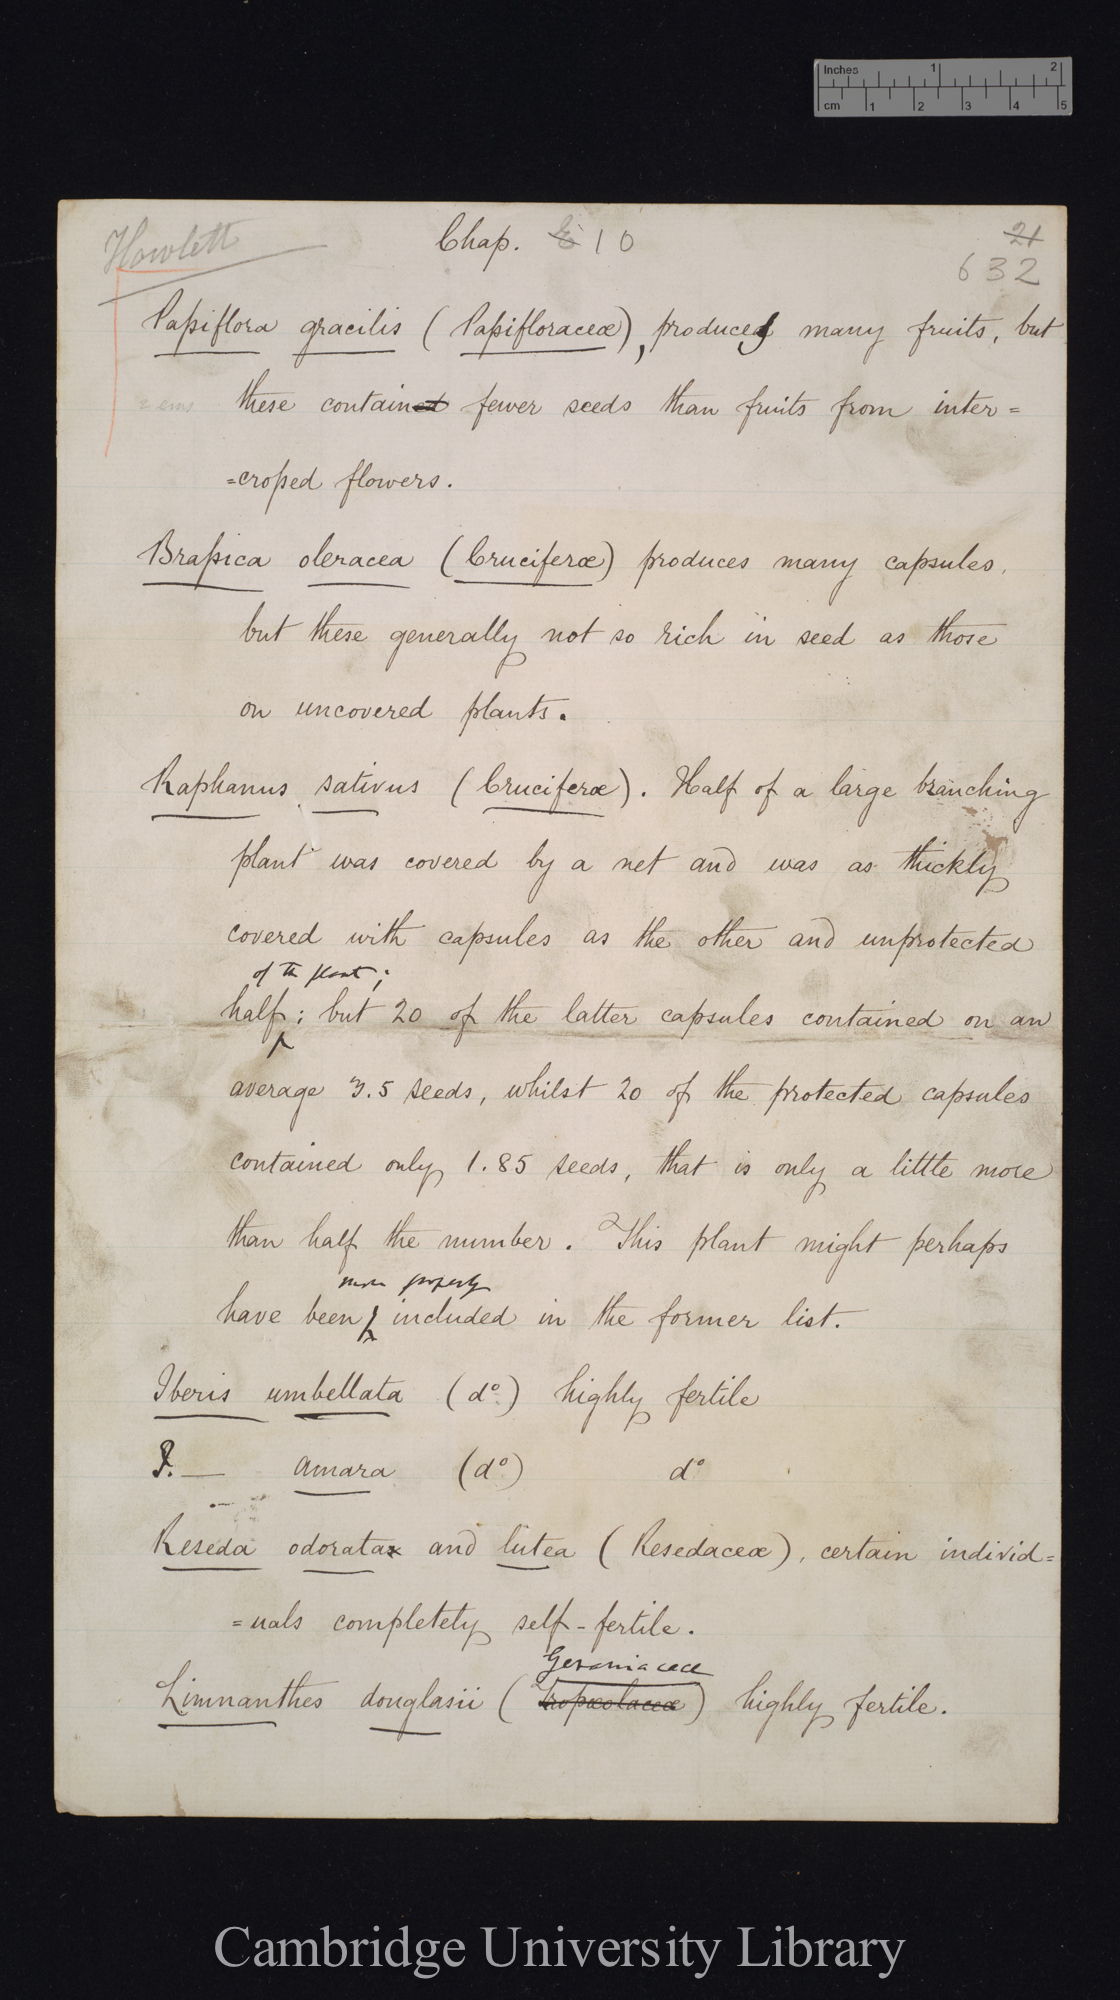 Inches 1 2
cm 1 2 3 4 5
Howlett Chap. 10 21
632
Passiflora gracilis (Passifloraceæ), produces many fruits, but
these contained fewer seeds than fruits from inter=
=crossed flowers.
Brassica oleracea (Cruciferæ) produces many capsules,
but these generally not so rich in seed as those
on uncovered plants.
Raphanus sativus (Cruciferæ). Half of a large branching
plant was covered by a net and was as thickly
covered with capsules as the other and unprotected
of the plant;
half; but 20 of the latter capsules contained on an
average 3.5 seeds, whilst 20 of the protected capsules
contained only 1.85 seeds, that is only a little more
than half the number. This plant might perhaps
more properly
have been included in the former list.
Iberis umbellata (do.) highly fertile
I. — amara (do) do
Reseda odorata and lutea (Resedaceæ), certain individ=
=uals completely self-fertile.
Geraniaceæ
Limnanthes douglasii (tropæolaceæ) highly fertile.
Cambridge University Library